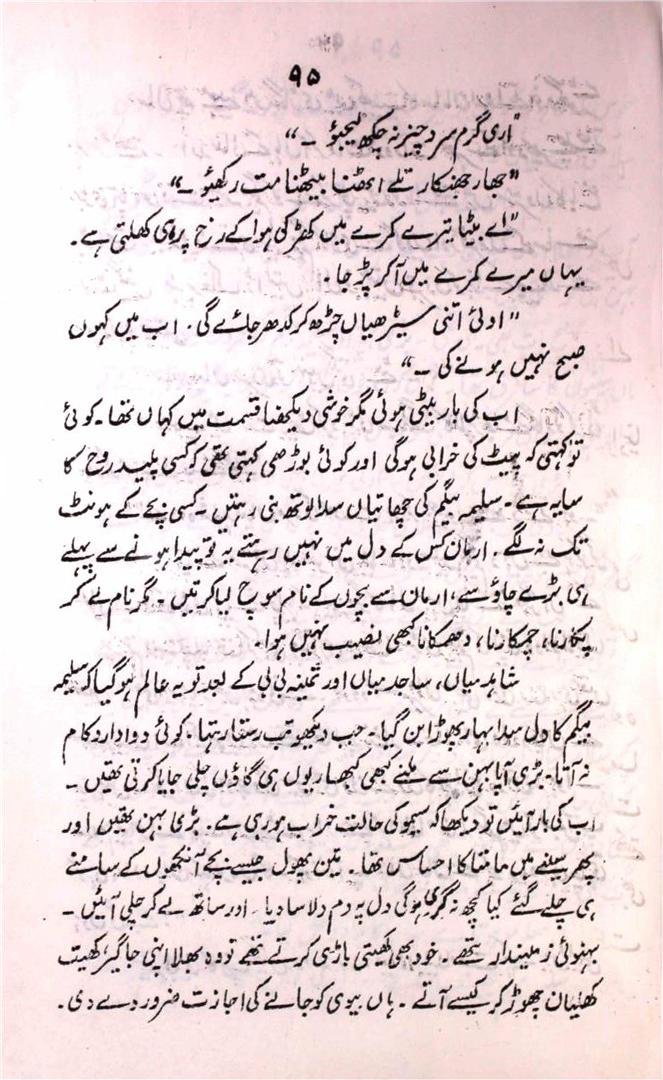 ۹۵
"اری گرم سرد چیز نہ چکھ لیجیؤ ۔"
"جھاڑ جھنکار تلے اٹھنا بیٹھنا مت رکھیؤ ۔"
"اے بیٹا تیرے کمرے میں کھڑکی ہوا کے رخ پر ہی کھلتی ہے۔
یہاں میرے کمرے میں آ کر پڑ جا۔
"اوئی اتنی سیڑھیاں چڑھ کر کدھر جائے گی۔ اب میں کہوں
صبح نہیں ہونے کی ۔"
اب کی بار بیٹی ہوئی مگر خوشی دیکھنا قسمت میں کہاں تھا۔ کوئی
تو کہتی کہ پیٹ کی خرابی ہوگی اور کوئی بوڑھی کہتی تھی کہ کسی پلید روح کا
سایہ ہے۔ سلیمہ بیگم کی چھاتیاں سدا لوتھ بنی رہتیں۔ کسی بچے کے ہونٹ
تک نہ لگے۔ ارمان کس کے دل میں نہیں رہتے یہ تو پیدا ہونے سے پہلے
ہی بڑے چاؤ سے، ارمان سے بچوں کے نام سوچ لیا کرتیں۔ مگر نام لے کر
پکارنا، چمکارنا، دھمکانا کبھی نصیب نہیں ہوا۔
شاہد میاں، ساجد میاں اور ثمینہ بی بی کے بعد تو یہ عالم ہو گیا کہ سلیمہ
بیگم کا دل سدا بہار پھوڑا بن گیا۔ جب دیکھو تب رستا رہتا۔ کوئی دوا دارو کام
نہ آتا۔ بڑی آپا بہن سے ملنے کبھی کبھار یوں ہی گاؤں چلی جایا کرتی تھیں۔
اب کی بار آئیں تو دیکھا کہ سیمو کی حالت خراب ہو رہی ہے۔ بڑی بہن تھیں اور
پھر سینے میں مامتا کا احساس تھا۔ تین پھول جیسے بچے آنکھوں کے سامنے
ہی چلے گئے کیا کچھ نہ گزری ہوگی دل پہ دم دلاسا دیا۔ اور ساتھ لے کر چلی آئیں۔
بہنوئی زمیندار تھے۔ خود بھی کھیتی باڑی کرتے تھے تو وہ بھلا اپنی جاگیر، کھیت
کھلیان چھوڑ کر کیسے آتے۔ ہاں بیوی کو جانے کی اجازت ضرور دے دی۔